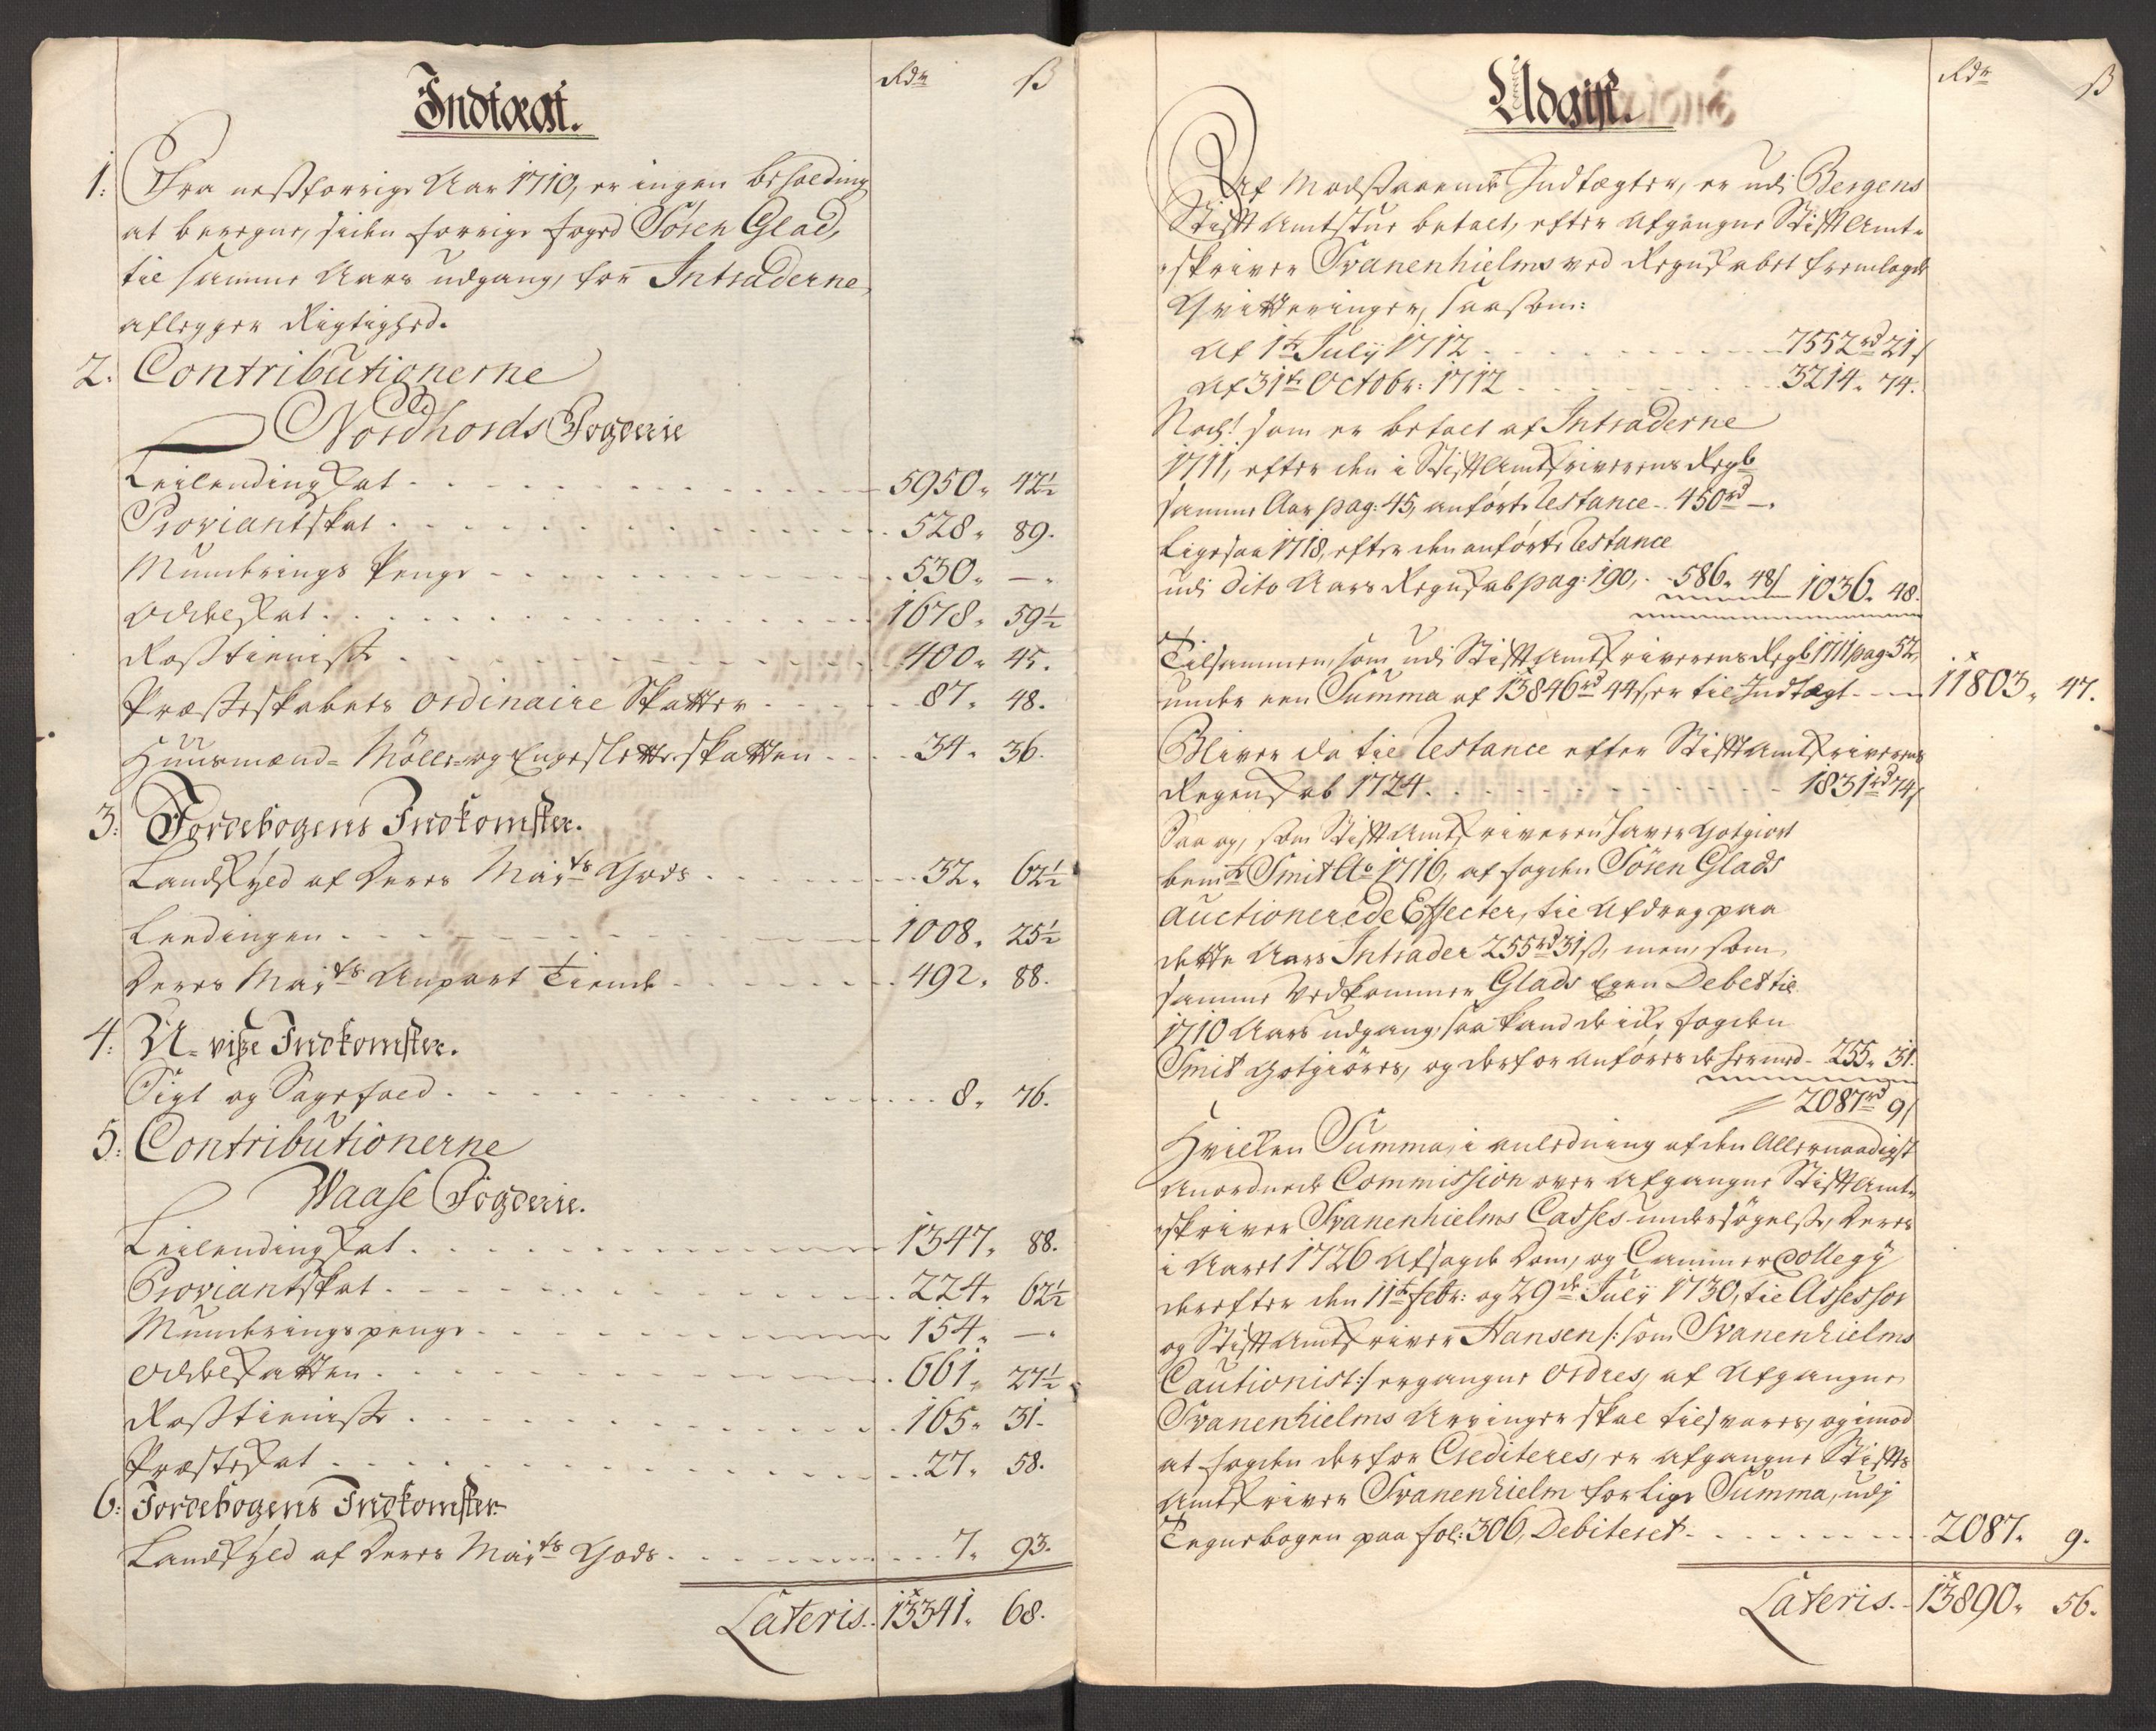 Indtægt.
Rdr ß
1: Fra nestforrige Aar 1710, er ingen beholding
at beregne, siden forrige foged Søren Glad,
til samme Aars udgang, for Intraderne
aflegger Rigtighed.
2. Contributionerne
Nordhords Fogderie
Leilendingskat 5950. 42½
Proviantskat 528. 89.
Munderings Penge 530. —.
Oddelskat 1678. 59½
Rosstieniste 400. 45.
Præsteskabets ordinaire Skatter 87. 48.
Huusmænd- Mölle- og Engeslette skatten 34. 36.
3: Jordebogens Indkomster.
Landskyld af Deres Maÿts Gods 32. 62½
Leedingen 1008. 25½
Deres Maÿts Anpart Tiende 492. 88.
4: U-visse Indkomster.
Sigt og Sagefald 8. 76.
5: Contributionerne
Waase Fogderie.
Leilendingskat 1347. 88.
Proviantskat 224. 62½
Munderingspenge 154. —.
Oddelskatten 661. 27½
Rosstieniste 165. 31.
Præsteskat 27. 58.
6: Jordebogens Indkomster
Landskyld af Deres Maÿts Gods 7. 93.
Lateris 13341. 68.
Udgift.
Rdr ß
Af Modstaaende Indtægter, er udi Bergens
Stift Amtstue betalt, efter afgangne Stift Amt-
skriver Svanenhielms ved Regnskabet fremlagde
Qvitteringer, saasom:
Af 1te Julÿ 1712 7552rd 21ß
Af 31te Octobr: 1712 3214. 74.
Noch! som er betalt af Intraderne
1711, efter den i Stift Amtskriverens Regb
samme Aar pag: 45, anførte Restance 450rd —.
Ligesaa 1718, efter den anførte Restance
udi dito Aars Regnskab pag: 190, 586. 48ß 1036. 48.
Tilsammen, som udi Stift Amtskriverens Regb 1711 pag 52,
under een Summa af 13846rd 44ß, er til Indtægt 11803. 47.
Bliver da til Restance efter Stift Amtskriverens
Regenskab 1724 1831rd 74ß
Saa og, som Stift Amtskriveren haver Gotgiort
bemte Smit Ao 1716, af fogden Søren Glads
auctionerede Effecter, til Afdrag paa
dette Aars Intrader 255rd 31ß, men, som
samme vedkommer Glads egen Debet til
1710 Aars udgang, saa kand de icke fogden
Smit Gotgiøres, og derfor anføres de hermed 255. 31.
2087rd 9ß
Hvilken Summa, i anledning af den Allernaadigst
Anordnede Commission over afgangne Stift Amt-
skriver Svanenhielms Casses undersøgelse, deres
i Aaret 1726 afsagde Dom, og Cammer Collegÿ
derefter den 11te febr: og 29de Julÿ 1730, til Assessor
og Stift Amtskriver Hansen /: som Svanenhielms
Cautionist :/ ergangne ordres, af afgangne
Svanenhielms Arvinger skal tilsvares, og imod
at fogden derfor Crediteres, er afgangne Stifts
Amtskriver Svanenhielm for lige Summa, udj
Tegnebogen paa fol: 306, Debiteret 2087. 9.
Lateris. 13890. 56.